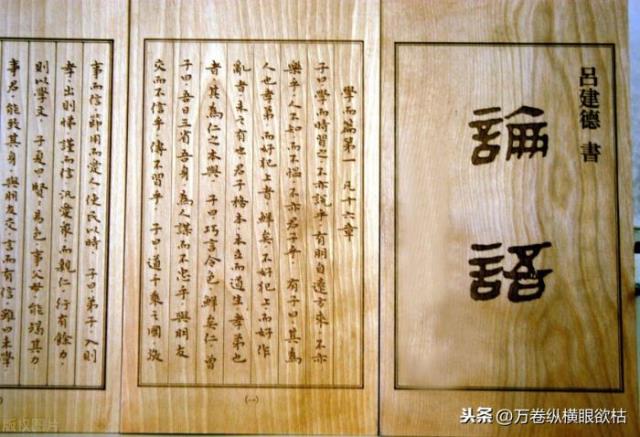 呂建德 書
論語
學而篇第一 凡十六章
子曰學而時習之、不亦說乎、有朋自遠方來、不亦
樂乎、人不知而不慍、不亦君子乎、有子曰其為
人也孝弟、而好犯上者、鮮矣、不好犯上、而好作
亂者、未之有也、君子務本、本立而道生、孝弟也
者、其為仁之本與、子曰巧言令色、鮮矣仁、曾
子曰、吾日三省吾身、為人謀而不忠乎、與朋友
交而不信乎、傳不習乎、子曰、道千乘之國、敬
(一)
事而信、節用而愛人、使民以時、子曰弟子、入則
孝、出則悌、謹而信、汎愛眾、而親仁、行有餘力、
則以學文、子夏曰賢々易色、事父母、能竭其力
事君、能致其身、與朋友交、言而有信、雖曰未學
版权图片
头条 @万卷纵横眼欲枯